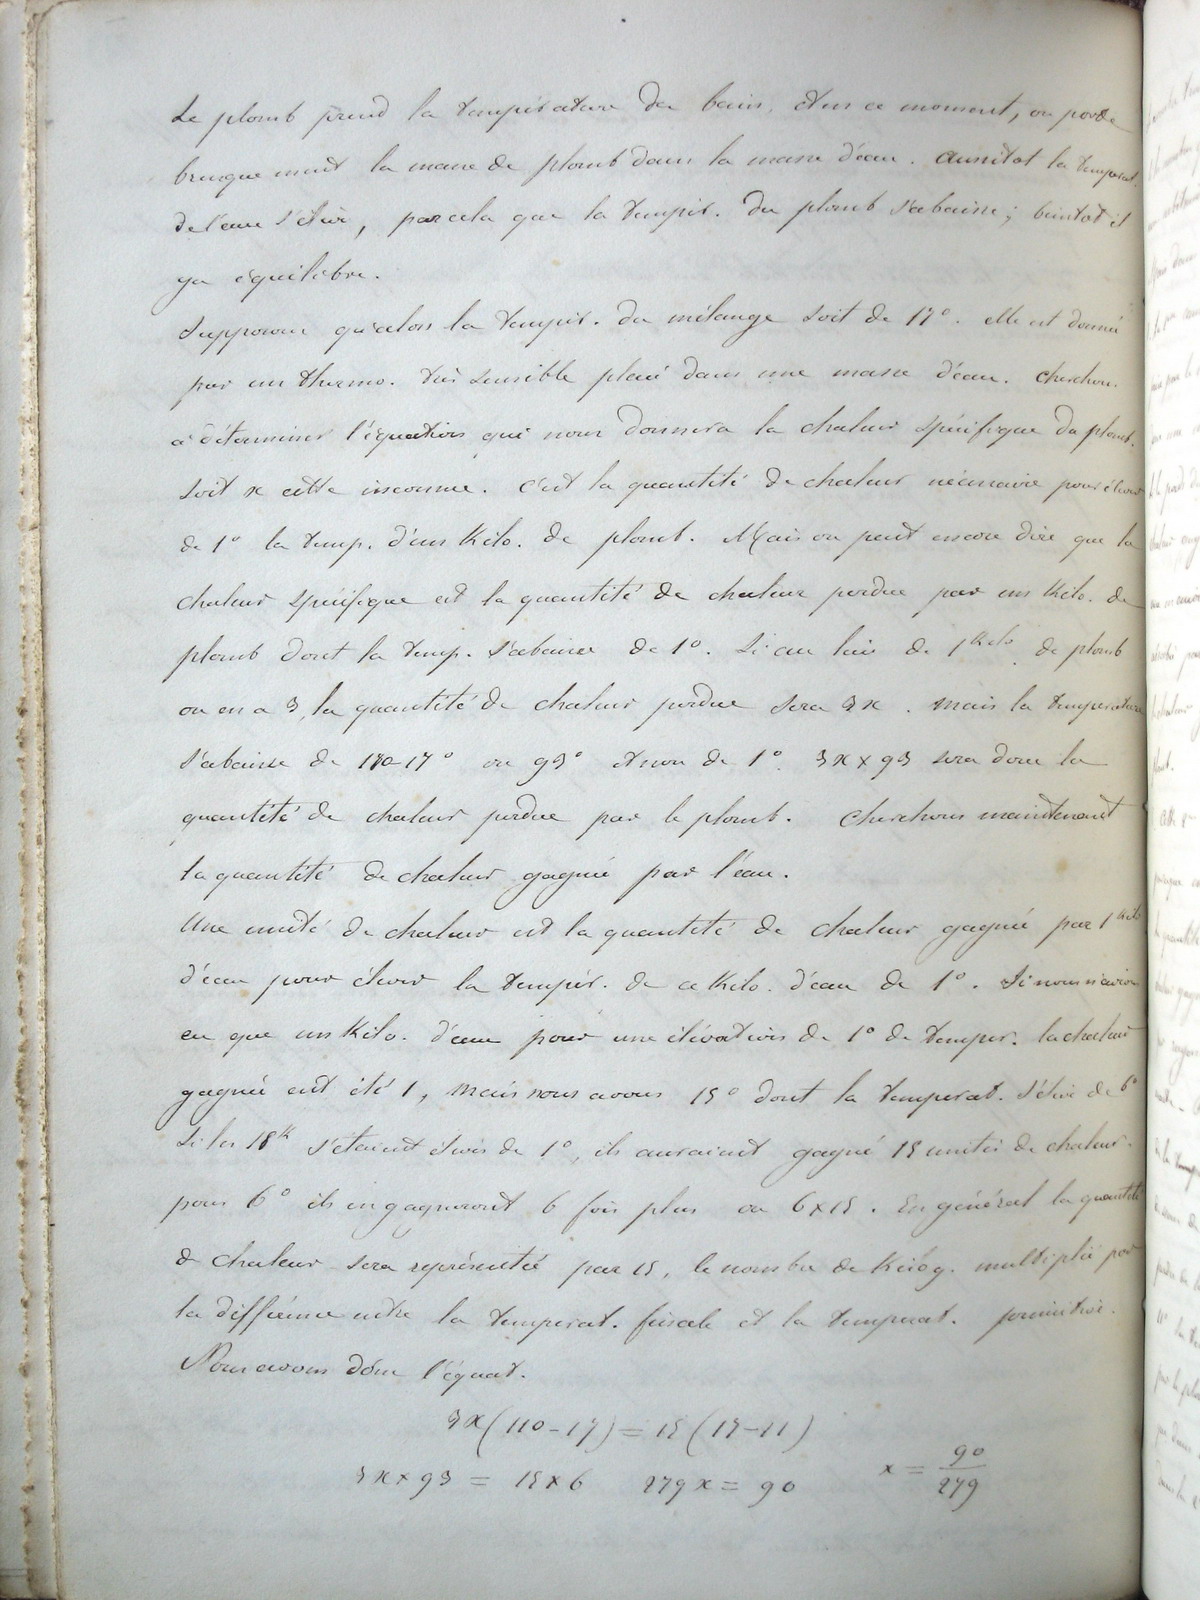 Le plomb prend la température du bain. A un ce moment, on porte
brusquement la masse de plomb dans la masse d'eau. aussitot la temperat.
de l'eau s'élève, parcela que la tempér. du plomb s'abaisse; bientot il
ya equilibre.
Supposons qu'alors la tempér. du mélange soit de 17°. elle est donnée
par un thermo. très sensible placé dans une masse d'eau. Cherchons
à déterminer l'équation qui nous donnera la chaleur spécifique du plomb.
Soit x cette inconnue. C'est la quantité de chaleur nécessaire pour élever
de 1° la temp. d'un Kilo. de plomb. Mais on peut encore dire que la
chaleur spécifique est la quantité de chaleur perdue par un Kilo. de
plomb dont la temp. s'abaisse de 1°. Si au lieu de 1 kilo. de plomb
on en a 3, la quantité de chaleur perdue sera 3x. Mais la temperature
s'abaisse de 110-17° ou 93° et non de 1°. 3x x 93 sera donc la
quantité de chaleur perdue par le plomb. Cherchons maintenant
la quantité de chaleur gagnée par l'eau.
Une unité de chaleur est la quantité de chaleur gagnée par 1 kilo
d'eau pour élever la tempér. de ce Kilo. d'eau de 1°. Si nous n'avions
eu que un Kilo. d'eau pour une élévation de 1° de temper. la chaleur
gagnée eut été 1, mais nous avons 15° dont la temperat. s'élève de 6°
Si les 15k s'étaient élevés de 1°, ils auraient gagné 15 unités de chaleur.
pour 6° ils en gagneront 6 fois plus ou 6x15. En général la quantité
de chaleur sera représentée par 15, le nombre de Kilog. multiplié par
la différence entre la temperat. finale et la temperat. primitive.
Nous avons donc l'équat.
3x(110-17) = 15(17-11)
3x x 93 = 15x6 279x = 90 x = 90/279